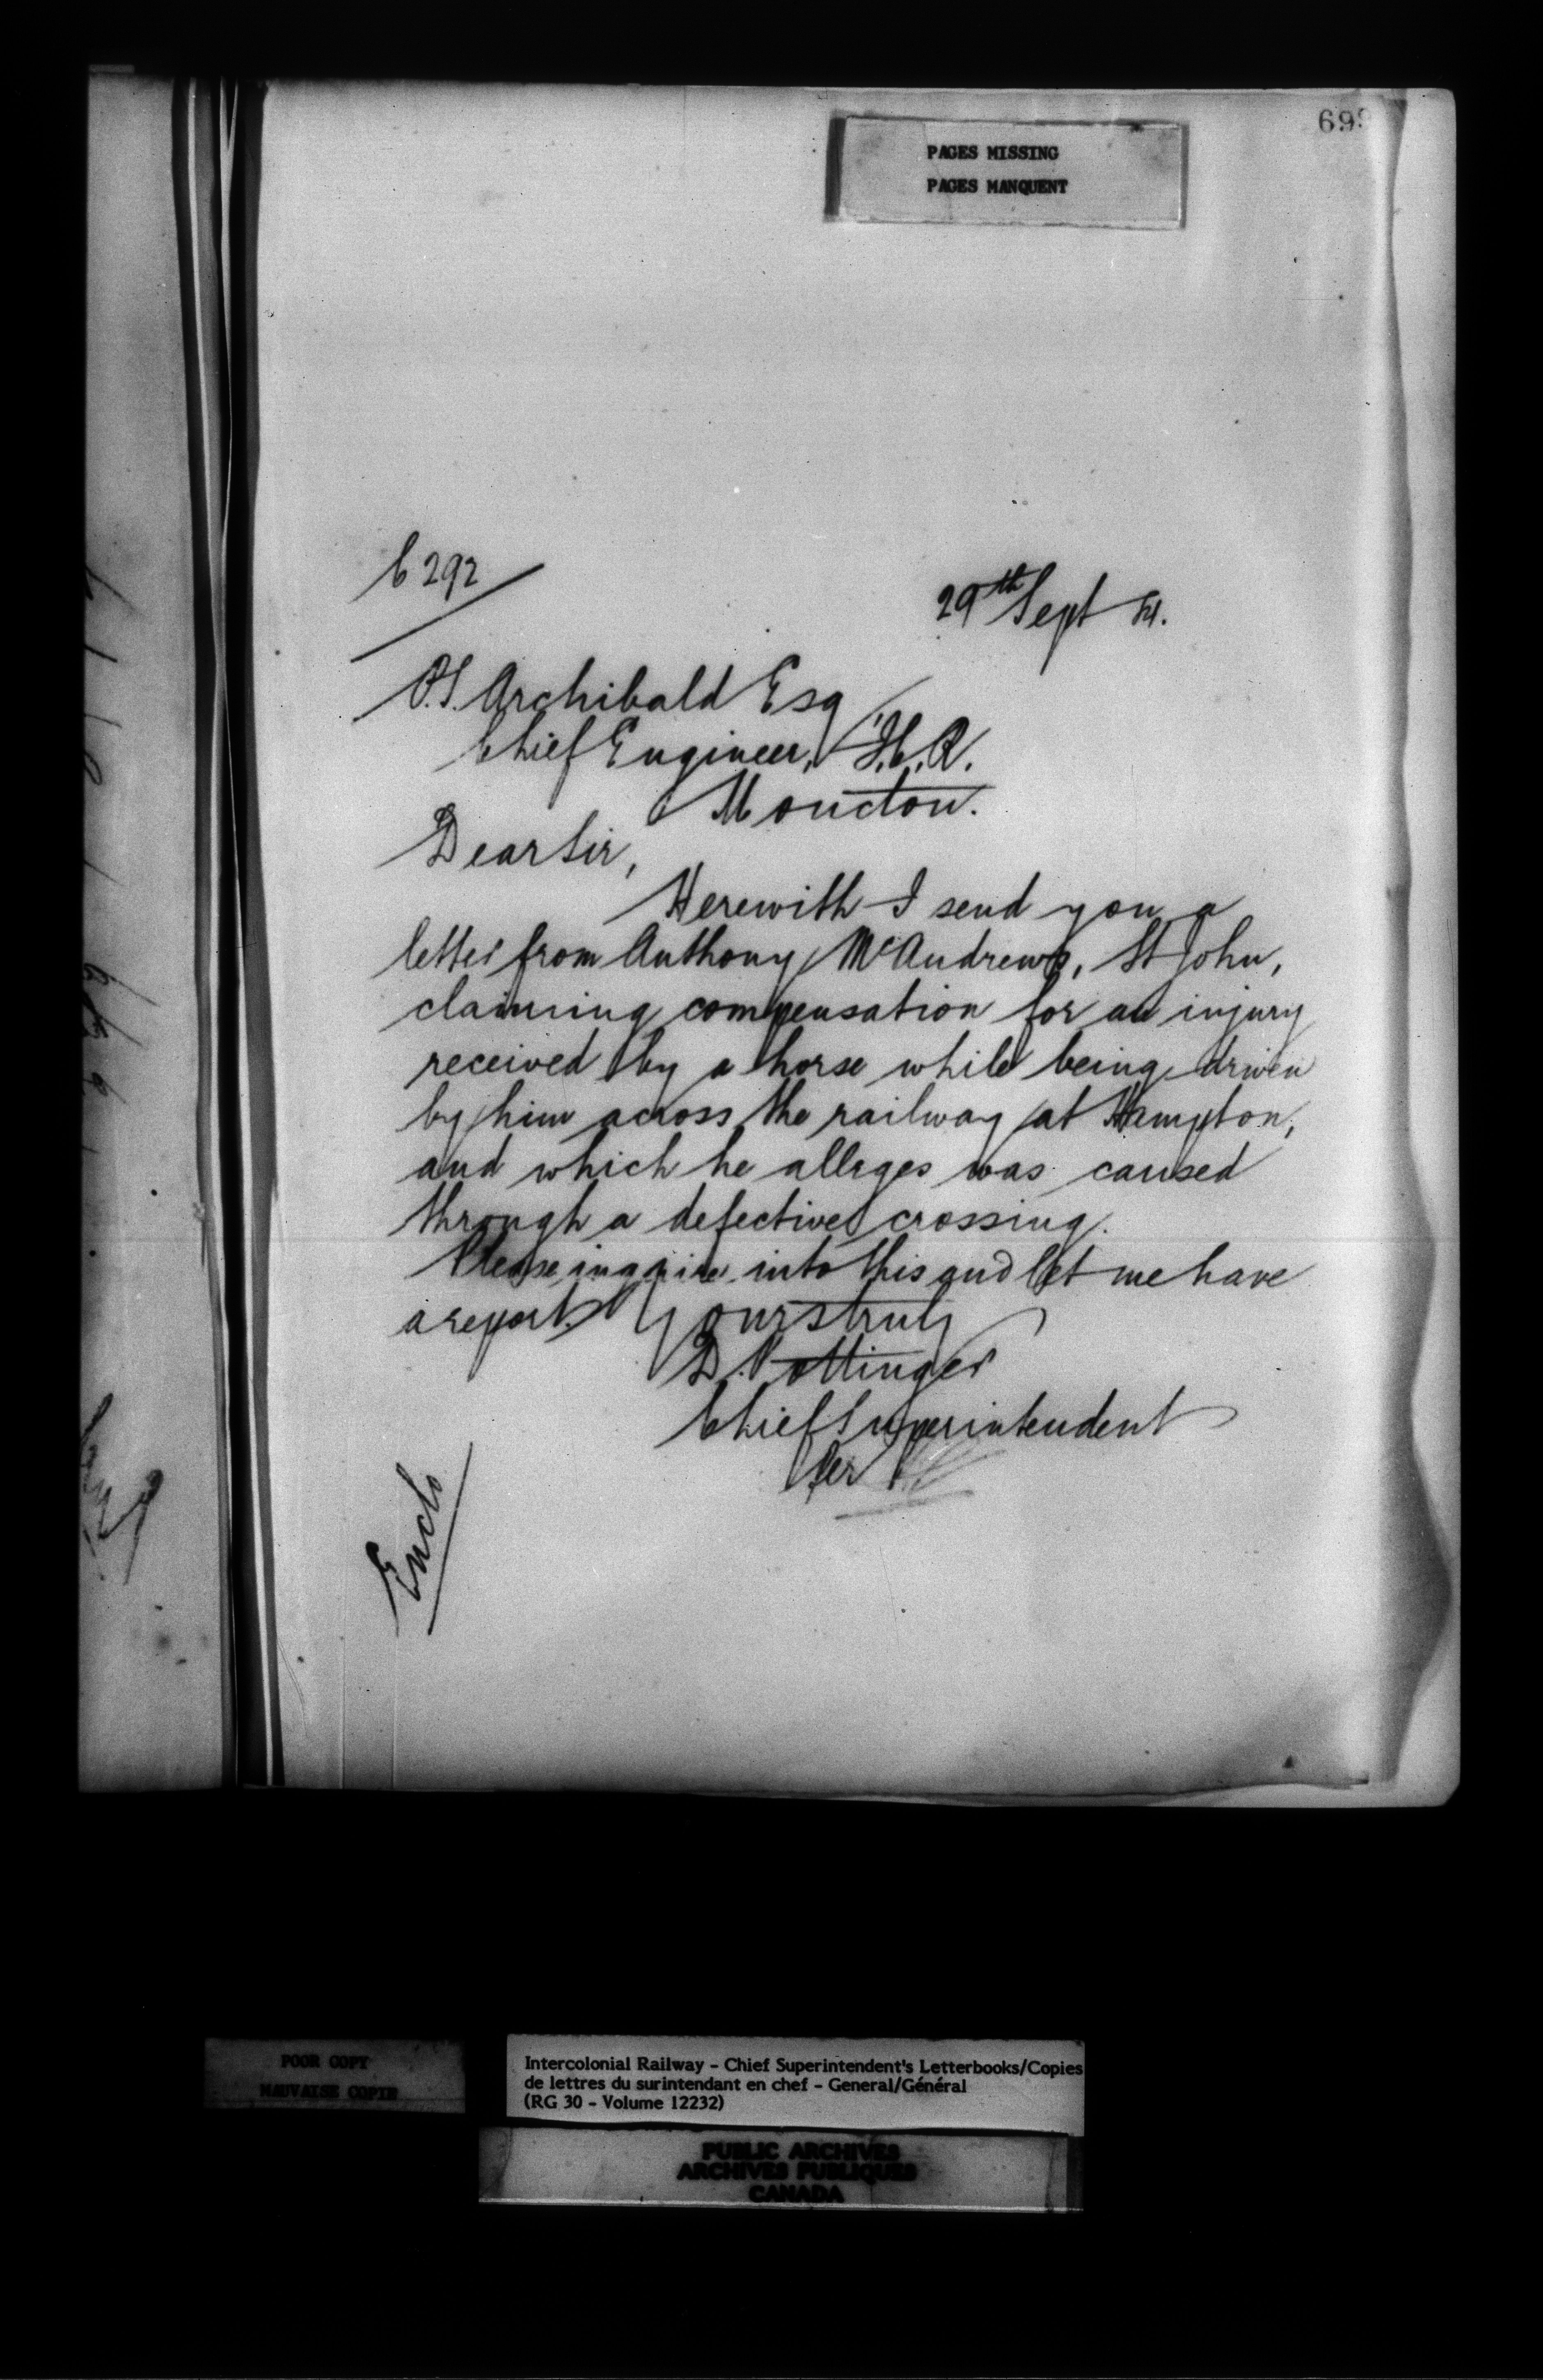 699
PAGES MISSING
PAGES MANQUENT
C 292
29th Sept 81.
P.S. Archibald Esq
Chief Engineer, I.C.R.
Moncton.
Dear Sir,
Herewith I send you a
letter from Anthony McAndrews, St John,
claiming compensation for an injury
received by a horse while being driven
by him across the railway at Hampton,
and which he alleges was caused
through a defective crossing.
Please inquire into this and let me have
a report. Yours truly
D. Pottinger
Chief Superintendent
Per
Enclo
POOR COPY
MAUVAISE COPIE
Intercolonial Railway - Chief Superintendent's Letterbooks/Copies
de lettres du surintendant en chef - General/Général
(RG 30 - Volume 12232)
PUBLIC ARCHIVES
ARCHIVES PUBLIQUES
CANADA